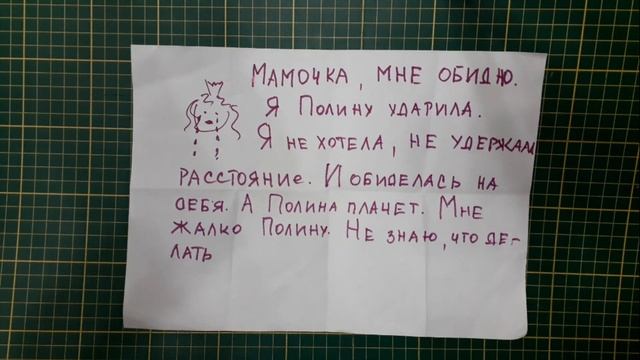 Мамочка, мне обидно.
Я Полину ударила.
Я не хотела, не удержала
расстояние. И обиделась на
себя. А Полина плачет. Мне
жалко Полину. Не знаю, что де-
лать